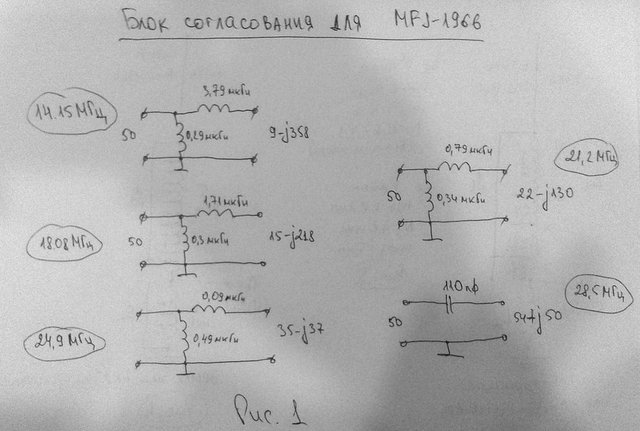 Блок согласования для MFJ-1966
14.15 МГц
3,79 мкГн
50
0,29 мкГн
9-j358
18.08 МГц
1,71 мкГн
50
0,3 мкГн
15-j218
24,9 МГц
0,09 мкГн
50
0,49 мкГн
35-j37
21,2 МГц
0,79 мкГн
50
0,34 мкГн
22-j130
28,5 МГц
110 пф
50
54+j50
Рис. 1